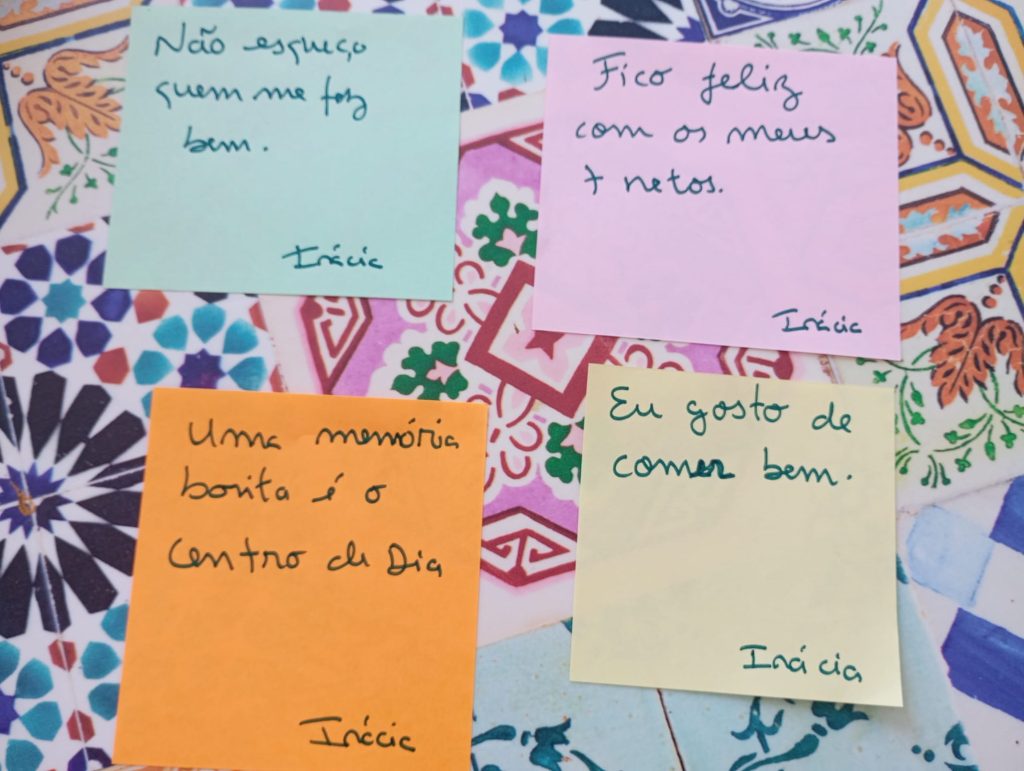 Não esqueço
quem me faz
bem.
Inácia
Fico feliz
com os meus
7 netos.
Inácia
Uma memória
bonita é o
Centro de Dia
Inácia
Eu gosto de
comer bem.
Inácia